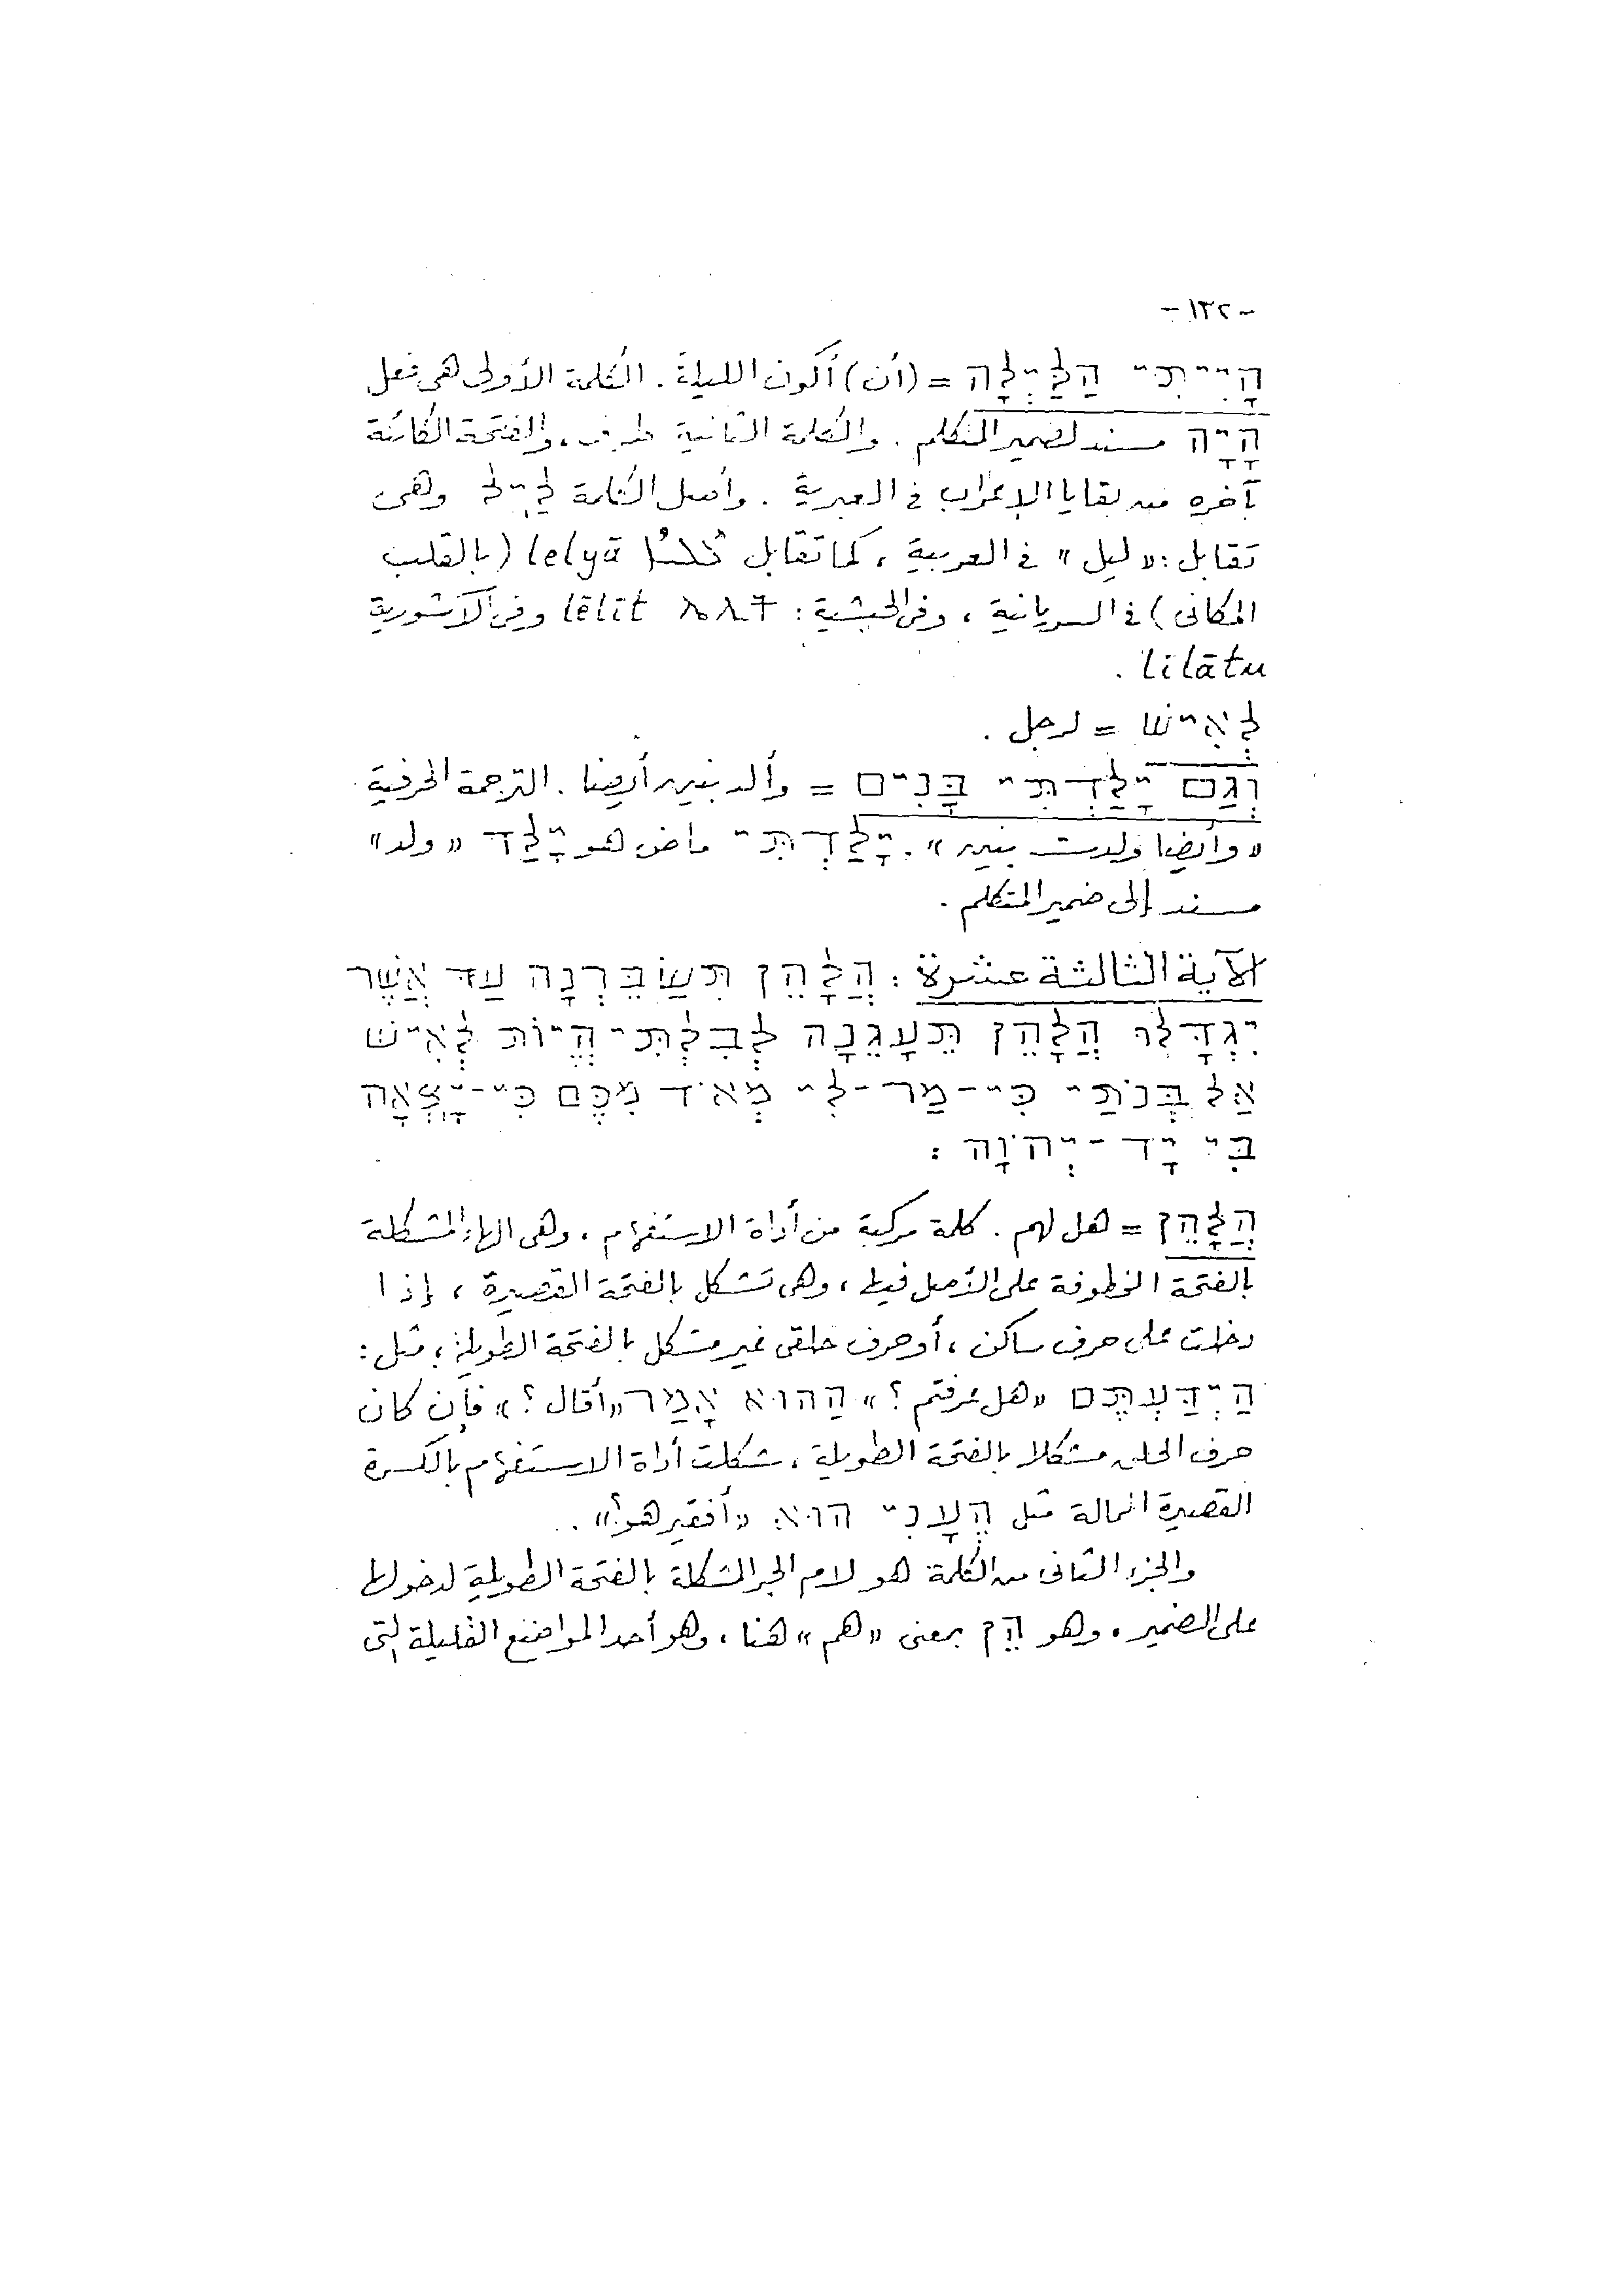 - ١٣٢ -
הָיִיתִי הַלַּיְלָה = (أن) أكون الليلة. الكلمة الأولى هى فعل
הָיָה مسند لضمير المتكلم. والكلمة الثانية ظرف، والفتحة الكائنة
بآخره من بقايا الإعراب فى العبرية. وأصل الكلمة לַיִל وهى
تقابل: «ليل» فى العربية، كما تقابل lelyā (بالقلب
المكانى) فى السريانية، وفى الحبشية: ሌሊት lēlīt وفى الآشورية
lilātu.
לְאִישׁ = لرجل.
וְגַם יָלַדְתִּי בָּנִים = وألد بنين أيضا. الترجمة الحرفية
«وأيضا ولدت بنين». יָלַדְתִּי ماض هو יָלַד «ولد»
مسند إلى ضمير المتكلم.
الآية الثالثة عشرة: הֲלָהֵן תְּשַׂבֵּרְנָה עַד אֲשֶׁר
יִגְדָּלוּ הֲלָהֵן תֵּעָגֵנָה לְבִלְתִּי הֱיוֹת לְאִישׁ
אַל בְּנֹתַי כִּי-מַר-לִי מְאֹד מִכֶּם כִּי-יָצְאָה
בִּי יָד-יְהוָה:
הֲלָהֵן = هل لهم. كلمة مركبة من أداة الاستفهام، وهى الهاء المشكلة
بالفتحة الخطوفة على الأصل فيها، وهى تشكل بالفتحة القصيرة، إذا
دخلت على حرف ساكن، أو حرف حلقى غير مشكل بالفتحة الطويلة، مثل:
הַיְדַעְתֶּם «هل عرفتم؟» הַהוּא אָמַר «أقال؟» فإن كان
حرف الحلق مشكلا بالفتحة الطويلة، شكلت أداة الاستفهام بالكسرة
القصيرة الممالة مثل הֶעָנִי הוּא «أفقير هو؟».
والجزء الثانى من الكلمة هو لام الجر المشكلة بالفتحة الطويلة لدخولها
على الضمير، وهو הֵן بمعنى «هم» هنا، وهو أحد المواضع القليلة التى